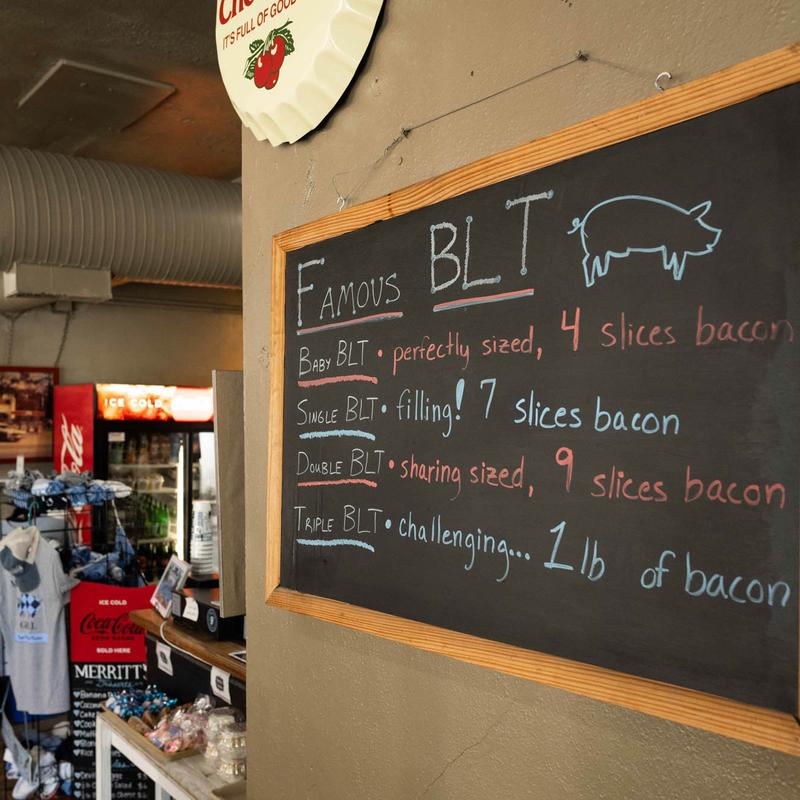 IT'S FULL OF GOOD
FAMOUS BLT
BABY BLT • perfectly sized, 4 slices bacon
SINGLE BLT • filling! 7 slices bacon
DOUBLE BLT • sharing sized, 9 slices bacon
TRIPLE BLT • challenging... 1 lb of bacon
ICE COLD
ICE COLD
Coca-Cola
ZERO SUGAR
SOLD HERE
MERRITT'S
Desserts
Banana